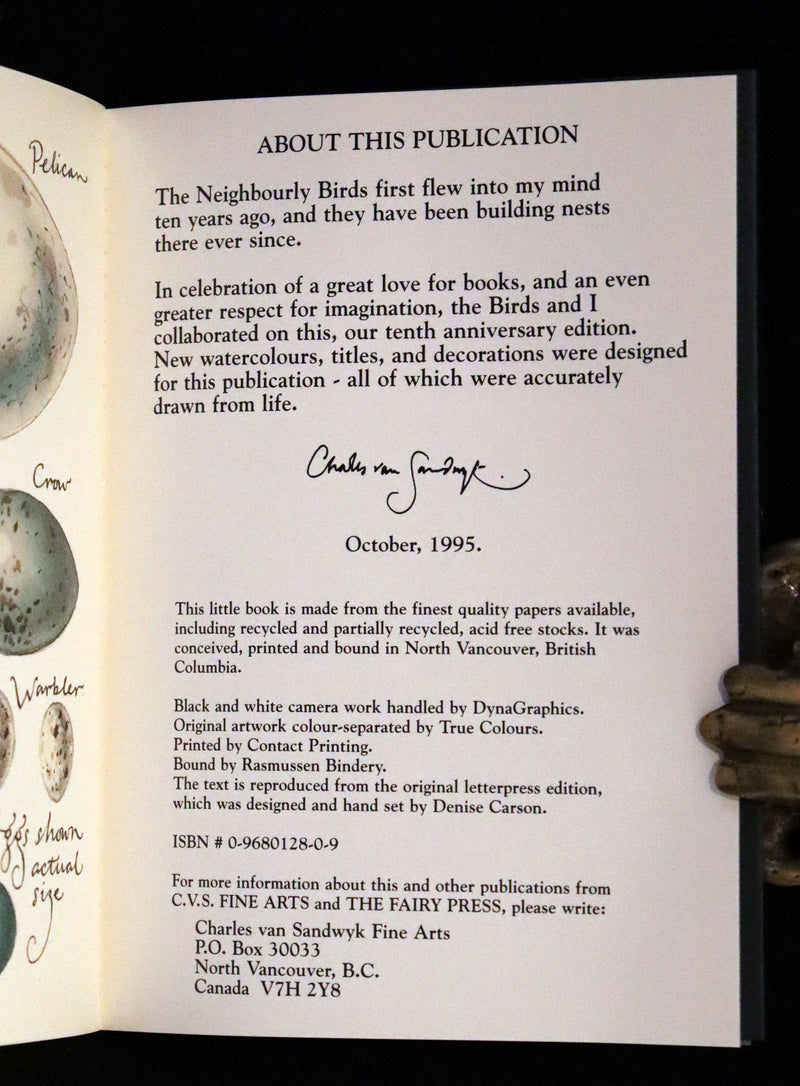 Pelican
Crow
Warbler
eggs shown
actual
size
ABOUT THIS PUBLICATION
The Neighbourly Birds first flew into my mind
ten years ago, and they have been building nests
there ever since.
In celebration of a great love for books, and an even
greater respect for imagination, the Birds and I
collaborated on this, our tenth anniversary edition.
New watercolours, titles, and decorations were designed
for this publication - all of which were accurately
drawn from life.
Charles van Sandwyk.
October, 1995.
This little book is made from the finest quality papers available,
including recycled and partially recycled, acid free stocks. It was
conceived, printed and bound in North Vancouver, British
Columbia.
Black and white camera work handled by DynaGraphics.
Original artwork colour-separated by True Colours.
Printed by Contact Printing.
Bound by Rasmussen Bindery.
The text is reproduced from the original letterpress edition,
which was designed and hand set by Denise Carson.
ISBN # 0-9680128-0-9
For more information about this and other publications from
C.V.S. FINE ARTS and THE FAIRY PRESS, please write:
Charles van Sandwyk Fine Arts
P.O. Box 30033
North Vancouver, B.C.
Canada V7H 2Y8